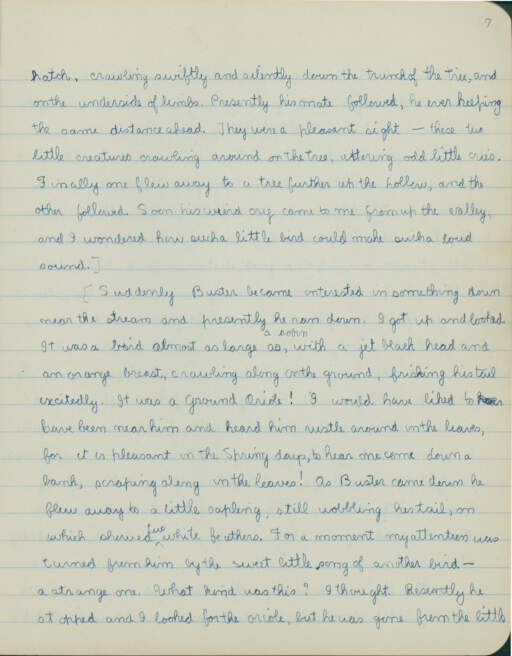 7
hatch, crawling swiftly and silently down the trunk of the tree, and
on the underside of limbs. Presently his mate followed, he ever keeping
the same distance ahead. They were a pleasant sight — these two
little creatures crawling around on the tree, uttering odd little cries.
Finally one flew away to a tree further up the hollow, and the
other followed. Soon his weird cry came to me from up the valley,
and I wondered how such a little bird could make such a loud
sound.]
[Suddenly Buster became interested in something down
near the stream and presently he ran down. I got up and looked
a robin
It was a bird almost as large as, with a jet black head and
an orange breast, crawling along on the ground, frisking his tail
excitedly. It was a Ground Oriole! I would have liked to
have been near him and heard him rustle around in the leaves,
for it is pleasant in the Spring days, to hear one come down a
bank, scraping along in the leaves! As Buster came down he
flew away to a little sapling, still wobbling his tail, on
two
which showed white feathers. For a moment my attention was
turned from him by the sweet little song of another bird —
a strange one. What kind was this? I thought. Presently he
stopped and I looked for the oriole, but he was gone from the little